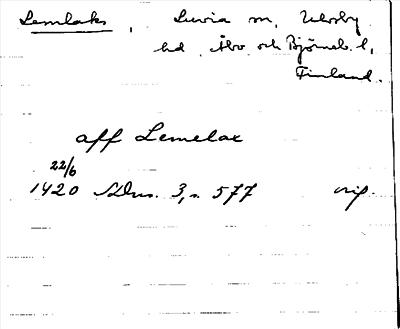 Lemlaks, Luvia sn, Ulvsby
hd Åbo och Björneb. l,
Finland.
aff Lemelax
22/6
1420 SDns. 3, s. 577 orig.